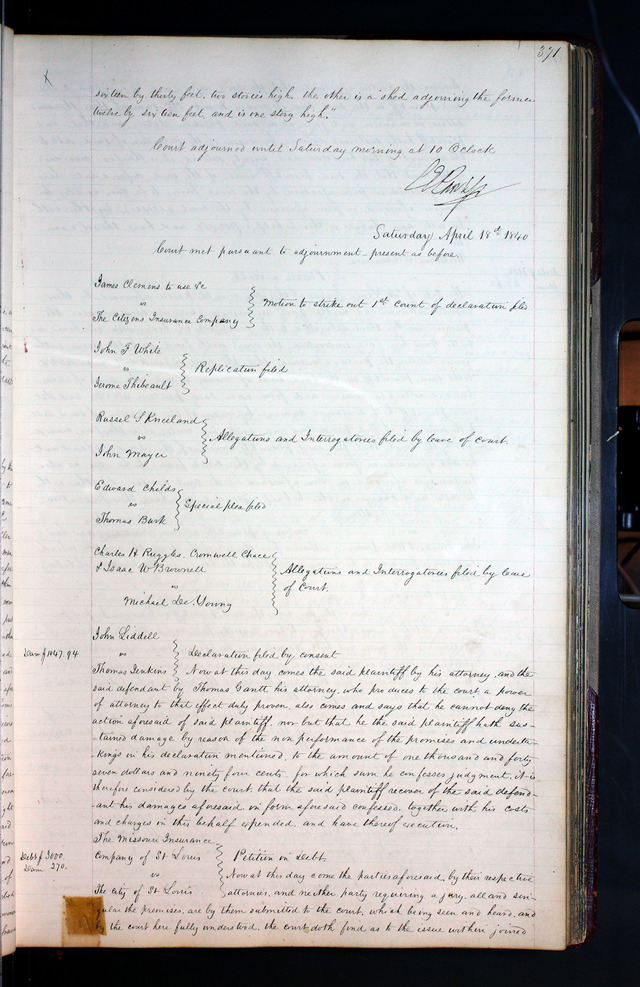 371
sixteen by thirty feet, two stories high. the other is a shed adjoining the former
twelve by sixteen feet, and is one story high."
Court adjourned until Saturday morning at 10 OClock
Saturday April 18th 1840
Court met pursuant to adjournment. present as before.
James Clemens to use &c
vs
The Citizens Insurance Company
Motion to strike out 1st Count of declaration filed
John F White
vs
Jerome Thibeault
Replication filed
Russel S Kneeland
vs
John Mayer
Allegations and Interrogatories filed by leave of court.
Edward Childs
vs
Thomas Burk
Special plea filed
Charles H Ruggles. Cromwell Chace
& Isaac W Brownell
vs
Michael De Young
Allegations and Interrogatories filed by leave
of Court.
John Liddell
vs
Thomas Jenkins
Dam $1047.94
Declaration filed by consent
Now at this day comes the said plaintiff by his attorney, and the
said defendant by Thomas Gantt his attorney, who produces to the court a power
of attorney to that effect duly proven, also comes and says that he cannot deny the
action aforesaid of said plaintiff, nor but that he the said plaintiff hath sus-
tained damage by reason of the non performance of the promises and underta-
kings in his declaration mentioned, to the amount of one thousand and forty
seven dollars and ninety four cents, for which sum he confesses judgment. it is
therefore considered by the court that the said plaintiff recover of the said defend-
ant his damages aforesaid in form aforesaid confessed, together with his costs
and charges in this behalf expended, and have thereof execution.
The Missouri Insurance
Company of St Louis
vs
The City of St Louis
Debt $3000.
Dam 270.
Petition in Debt
Now at this day come the parties aforesaid, by their respective
attornies, and neither party requiring a jury, all and sin-
gular the premises, are by them submitted to the court, which being seen and heard, and
by the court here fully understood, the court doth find as to the issue within joined